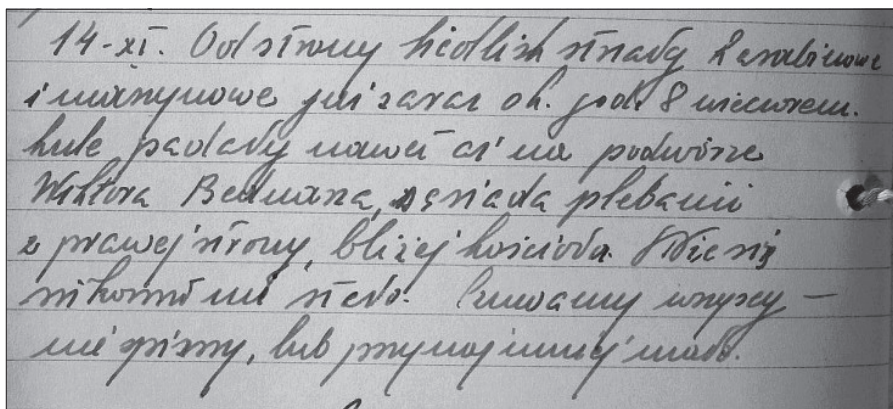 14-XI. Od strony Siedlisk strzały karabinowe
i maszynowe już zaraz ok. godz 8 wieczorem.
Kule padały nawet aż na podwórze
Wiktora Bednarza, sąsiada plebanii
z prawej strony, bliżej kościoła. Nic się
nikomu nie stało. Czuwamy wszyscy —
nie śpimy, lub przynajmniej mało.